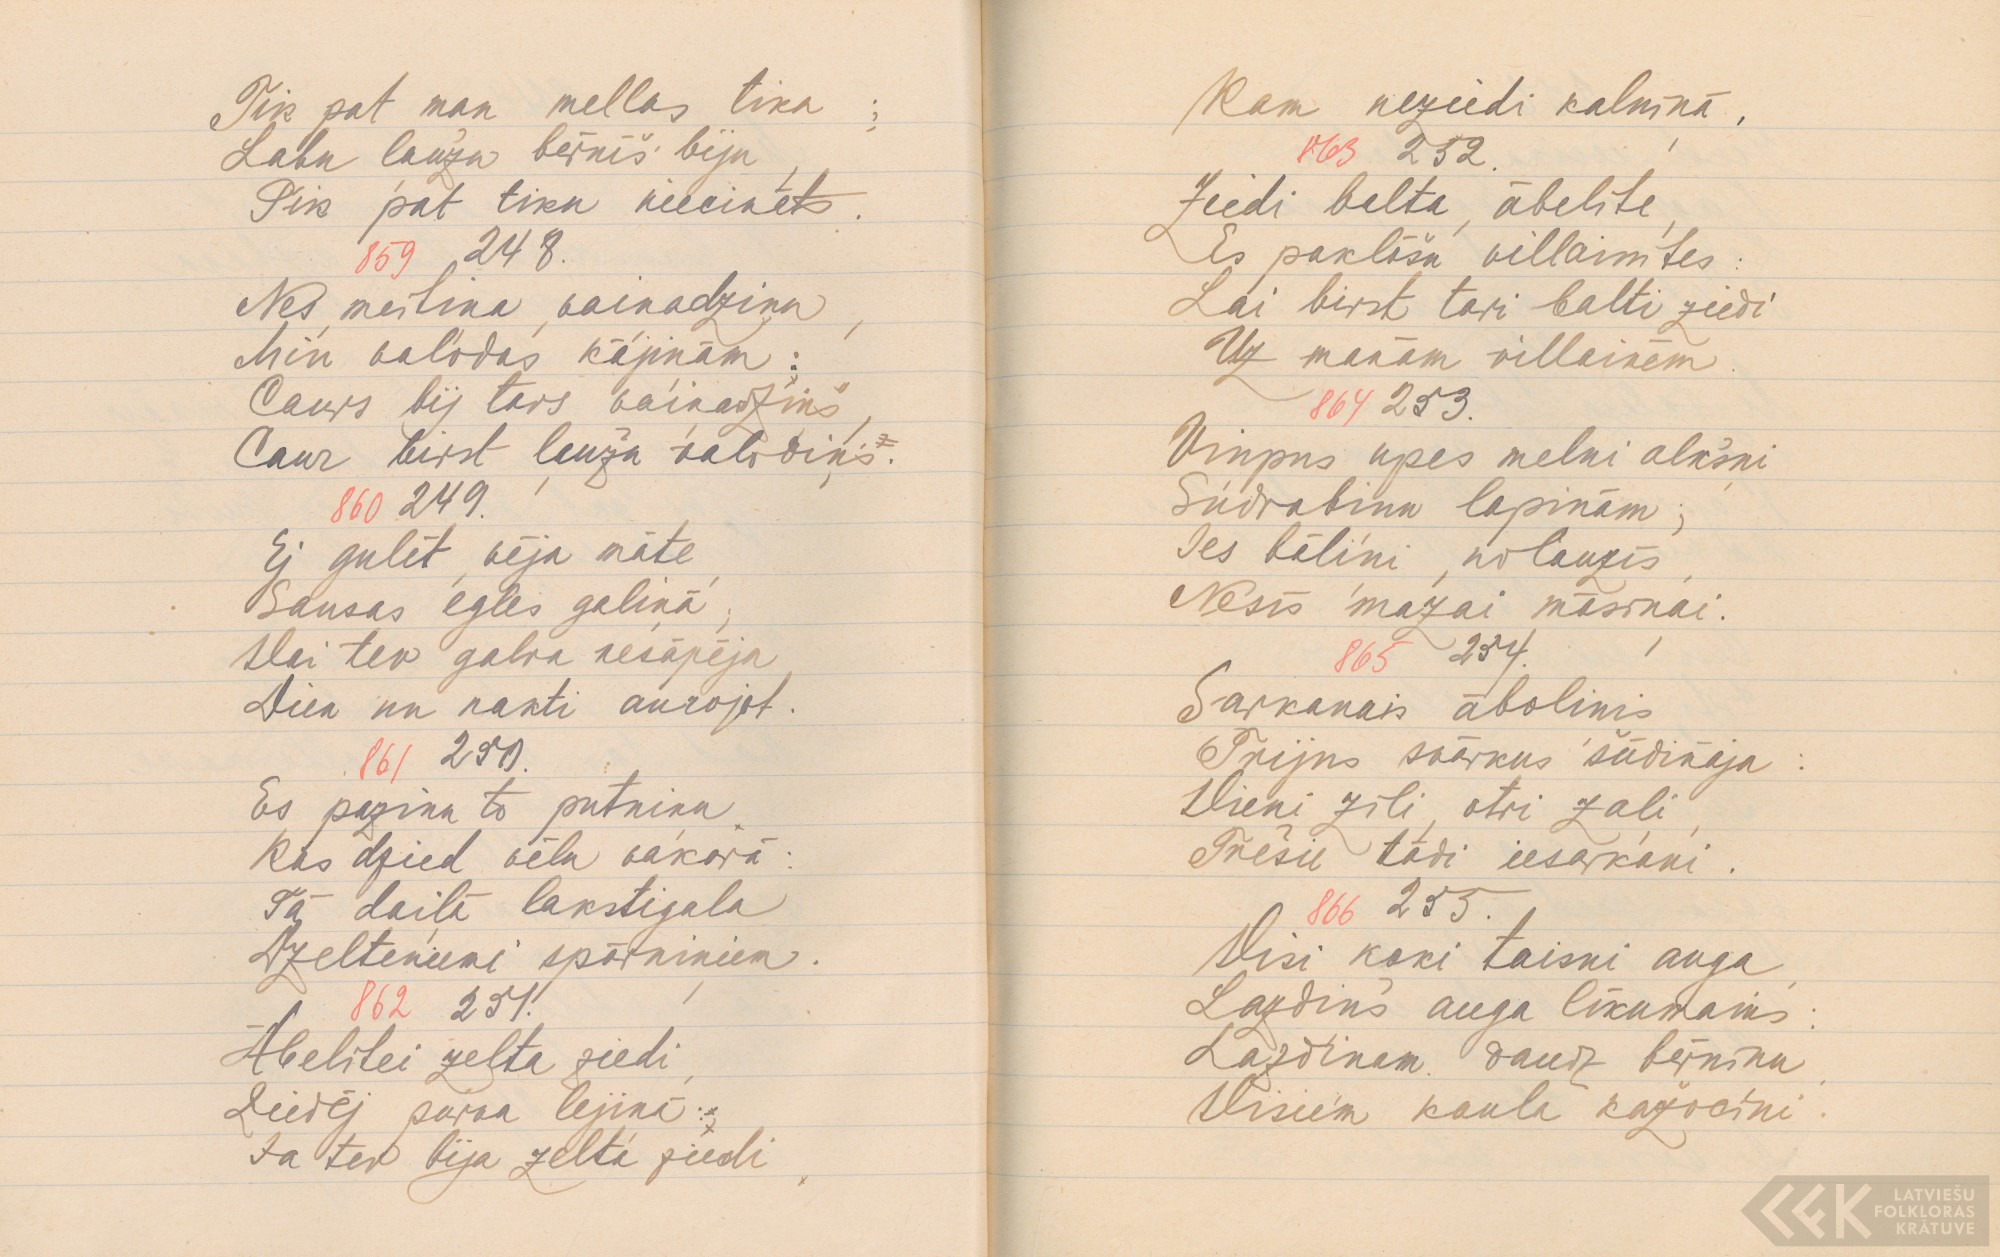 Tik pat man mellas tika ;
Labu laužu bērniš biju,
Tik pat tiku niecināts.
859 248.
Nes, meitiņa, vainadziņu,
Min valodas kājiņām:
Caurs bij tavs vainadziņš,
Caur birst laužu valodiņš.
860 249.
Ej gulēt, vēja māte,
Sausas egles galiņā;
Vai tev galva nesāpēja
Dien un nakti aurojot.
861 250.
Es pazinu to putniņu,
Kas dzied vēlu vakarā:
Tā dailā lakstigala
Dzelteniemi spārniņiem.
862 251.
Ābelītei zelta ziedi,
Ziedēj purva lejiņā:
Ja tev bija zelta ziedi,
Kam neziedi kalniņā,
863 252.
Ziedi balta, ābelīte,
Es paklāšu villainītes:
Lai birst tavi balti ziedi
Uz manām villainēm.
864 253.
Viņpus upes melni alkšņi
Sudrabiņu lapiņām;
Ies bāliņi, nolauzīs,
Nesīs mazai māsiņai.
865 254.
Sarkanais āboliņis
Trijus svārkus šūdināja:
Vieni zili, otri zaļi,
Trešie tādi iesarkani.
866 255.
Visi koki taisni auga,
Lazdiņš auga līkumains:
Lazdiņam daudz bērniņu,
Visiem kaula kažociņi.
LATVIEŠU
FOLKLORAS
KRĀTUVE